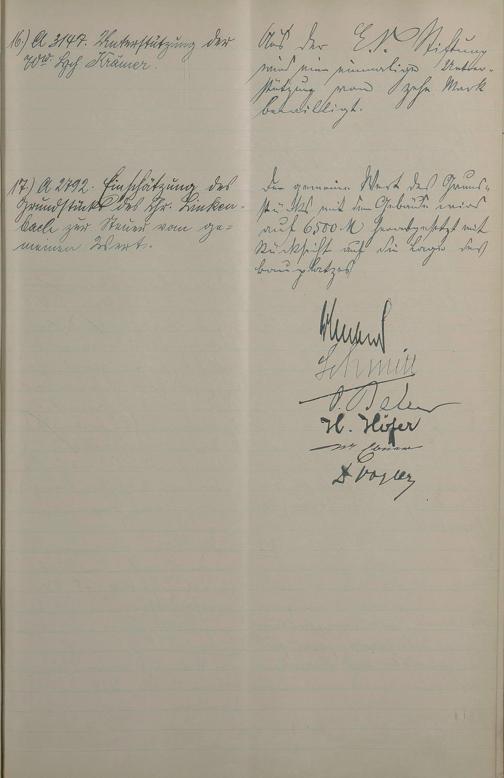 16.) A 3147. Unterstützung der
Wwe. Hch Krämer.
Aus der E. N. Stiftung
wird eine einmalige Unter-
stützung von zehn Mark
bewilligt.
17.) A 2792. Einschätzung des
Grundstücks des Hr. Linken-
bach zur Steuer vom ge-
meinen Wert.
Der gemeine Wert des Grund-
stücks mit dem Gebäude wird
auf 6500 M herabgesetzt mit
Rücksicht auf die Lage des
Bauplatzes
Schmitt
H. Höfer